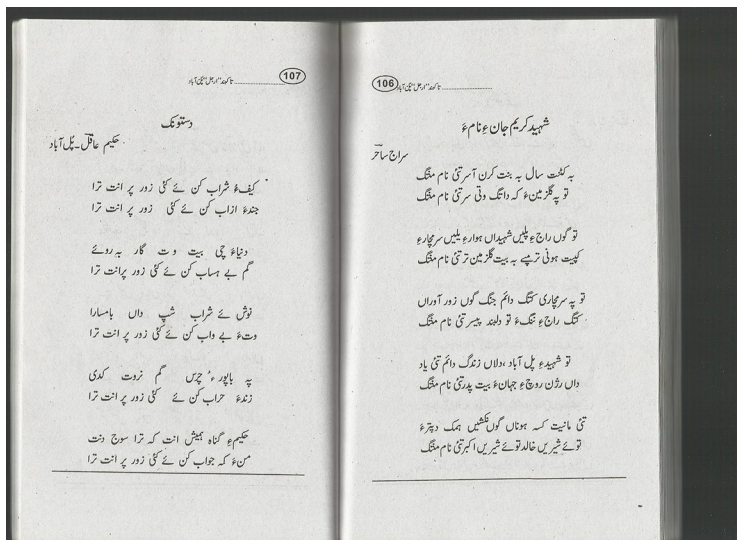 106 تاکبند "درچل" تچی آباد
شہید کریم جان ءِ نام ءَ
سراج ساحر
بہ کشت سال بہ بنت کرن آسر تئی نام مفتگ
تو پہ گلزمین ءَ کہ داتگ وتی سر تئی نام مفتگ
تو گوں راج ءِ پلیں شہیداں ہوار ءِ یلیں سرمچار ءِ
کپیت ہونی ترمپے بہ بیت گلزمین تر تئی نام مفتگ
تو پہ سرمچاری کتگ دائم جنگ گوں زور آوراں
کتگ راج ءِ ننگ ءَ تو دلبند پیسر تئی نام مفتگ
تو شہید ءِ پل آباد ،دلاں زندگ دائم تئی یاد
داں رژن روچ ءِ جہان ءَ بیت پدر تئی نام مفتگ
تئی مانیت کسہ ہوناں گوں نکشیں ہمک دپتر ءَ
توئے شیریں خالد توئے شیریں اکبر تئی نام مفتگ
107 تاکبند "درچل" تچی آباد
دستونک
حکیم عاقل۔ پُل آباد
کیف ءُ شراب کن ئے کئی زور پر انت ترا
جند ءَ ازاب کن ئے کئی زور پر انت ترا
دنیا ءَ چی بیت و ت گار بہ روئے
گم بے ہساب کن ئے کئی زور پر انت ترا
نوش ئے شراب شپ داں بامسارا
وت ءَ بے واب کن ئے کئی زور پر انت ترا
پہ باپور ءُ چرس گم نروت کدی
زند ءَ حراب کن ئے کئی زور پر انت ترا
حکیم ءِ گناہ ہمیش انت کہ ترا سوج دنت
من ءَ کہ جواب کن ئے کئی زور پر انت ترا